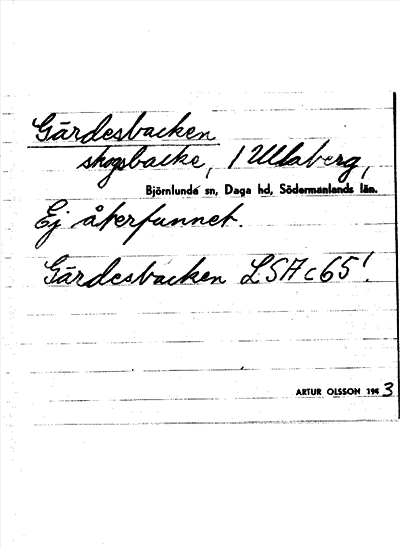 Gärdesbacken
skogsbacke, 1 Ullaberg,
Björnlunda sn, Daga hd, Södermanlands län.
Ej återfunnet.
Gärdesbacken LSA c65!
ARTUR OLSSON 1943